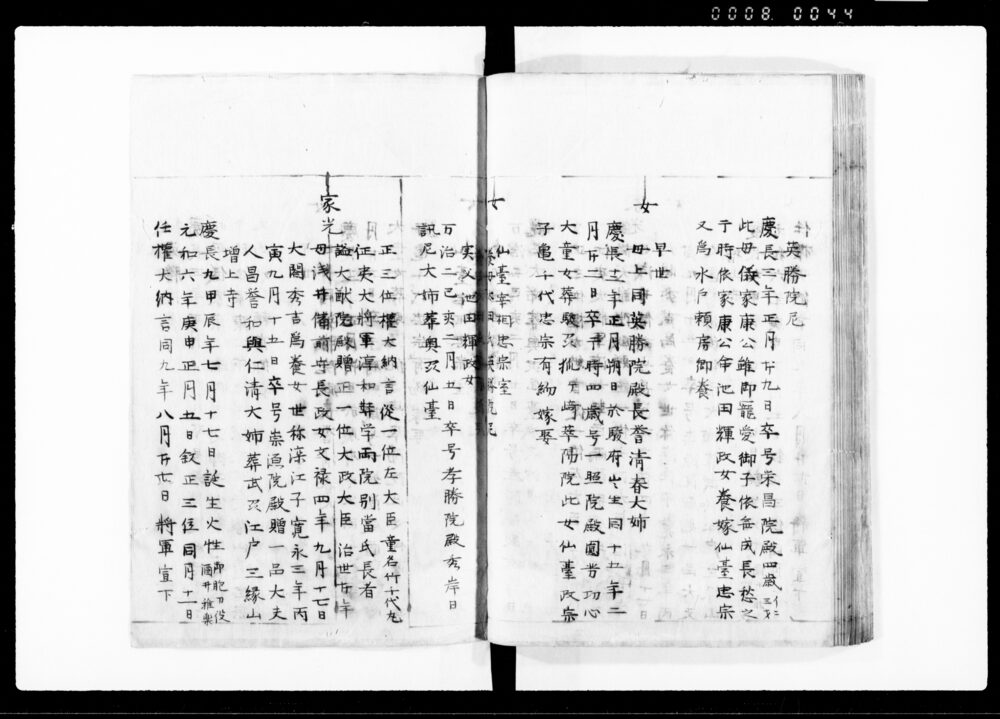 0008.0044
英勝院尼
慶長三年正月廿九日卒号栄昌院殿四歳
此母儀家康公雖即寵愛御子依無成長愁之
于時依家康公命池田輝政女養嫁仙臺忠宗
又為水戸頼房御養
女
早世
母上同英勝院殿長誉清春大姉
慶長十二年正月朔日於駿府出生同十五年二
月廿二日卒于時四歳号一照院殿圓芳功心
大童女葬駿又狐ヶ崎華陽院此女仙臺政宗
子亀千代忠宗有約嫁娶
女
仙臺宰相忠宗室
実父池田輝政女
万治二己亥二月五日卒号孝勝院殿秀岸日
訊尼大姉葬奥又仙臺
正三位權大納言從一位左大臣童名竹千代丸
征夷大将軍淳和弉学両院別當氏長者
謚大猷院殿贈正一位大政大臣 治世廿年
家光
母浅井備前守長政女文禄四年九月十七日
大閤秀吉為養女世称深江子寛永三年丙
寅九月十五日卒号崇源院殿贈一品大夫
人昌誉和興仁清大姉葬武又江戸三縁山
増上寺
慶長九甲辰年七月十七日誕生火性 御胞刀役 酒井雅楽
元和六年庚申正月五日叙正三位同月十一日
任權大納言同九年八月廿七日将軍宣下